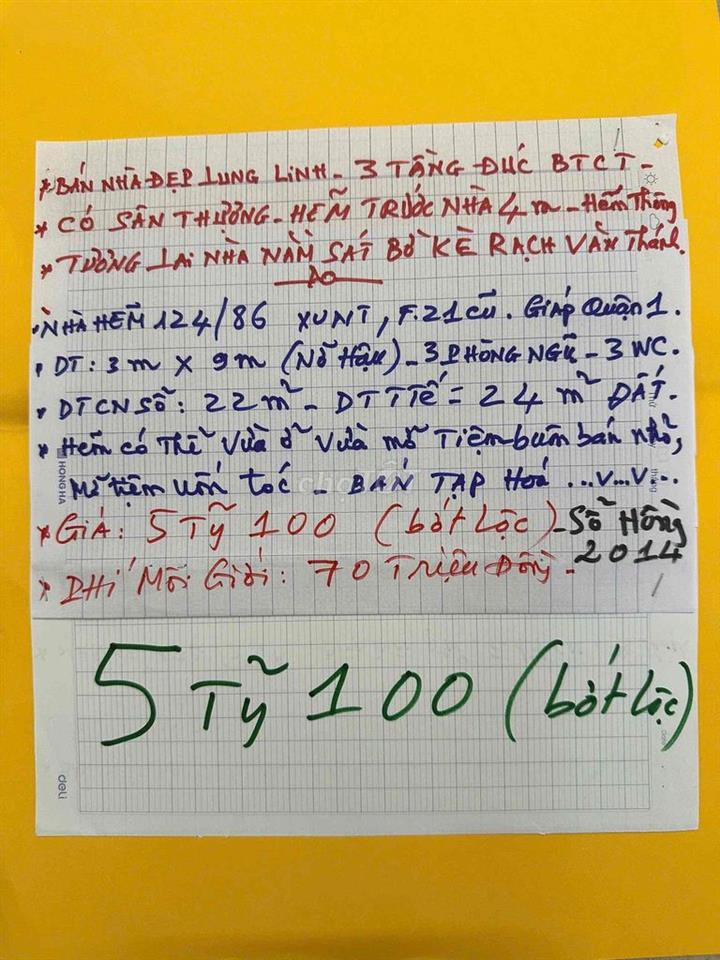 * BÁN NHÀ ĐẸP LUNG LINH - 3 TẦNG ĐÚC BTCT -
* CÓ SÂN THƯỢNG - HẼM TRƯỚC NHÀ 4 m - Hẽm Thông
* TƯƠNG LAI NHÀ NẰM SÁT BỜ KÈ RẠCH VĂN Thánh.
NHÀ HẼM 124/86 XVNT, F.21 cũ. Giáp Quận 1.
DT: 3m x 9m (Nở Hậu) - 3 PHÒNG NGỦ - 3 WC.
DTCN SỐ: 22 m² - DT TTẾ = 24 m² ĐẤT.
* Hẽm có Thể Vừa ở Vừa mở Tiệm buôn bán nhỏ,
Mở tiệm uốn tóc - BÁN TẠP Hoá ...v...v...
* GIÁ: 5 Tỷ 100 (bớt lộc) - Sổ Hồng
2014
* PHÍ Môi Giới: 70 Triệu Đồng -
5 Tỷ 100 (bớt lộc)
HONG HA
deli
chợTỐT